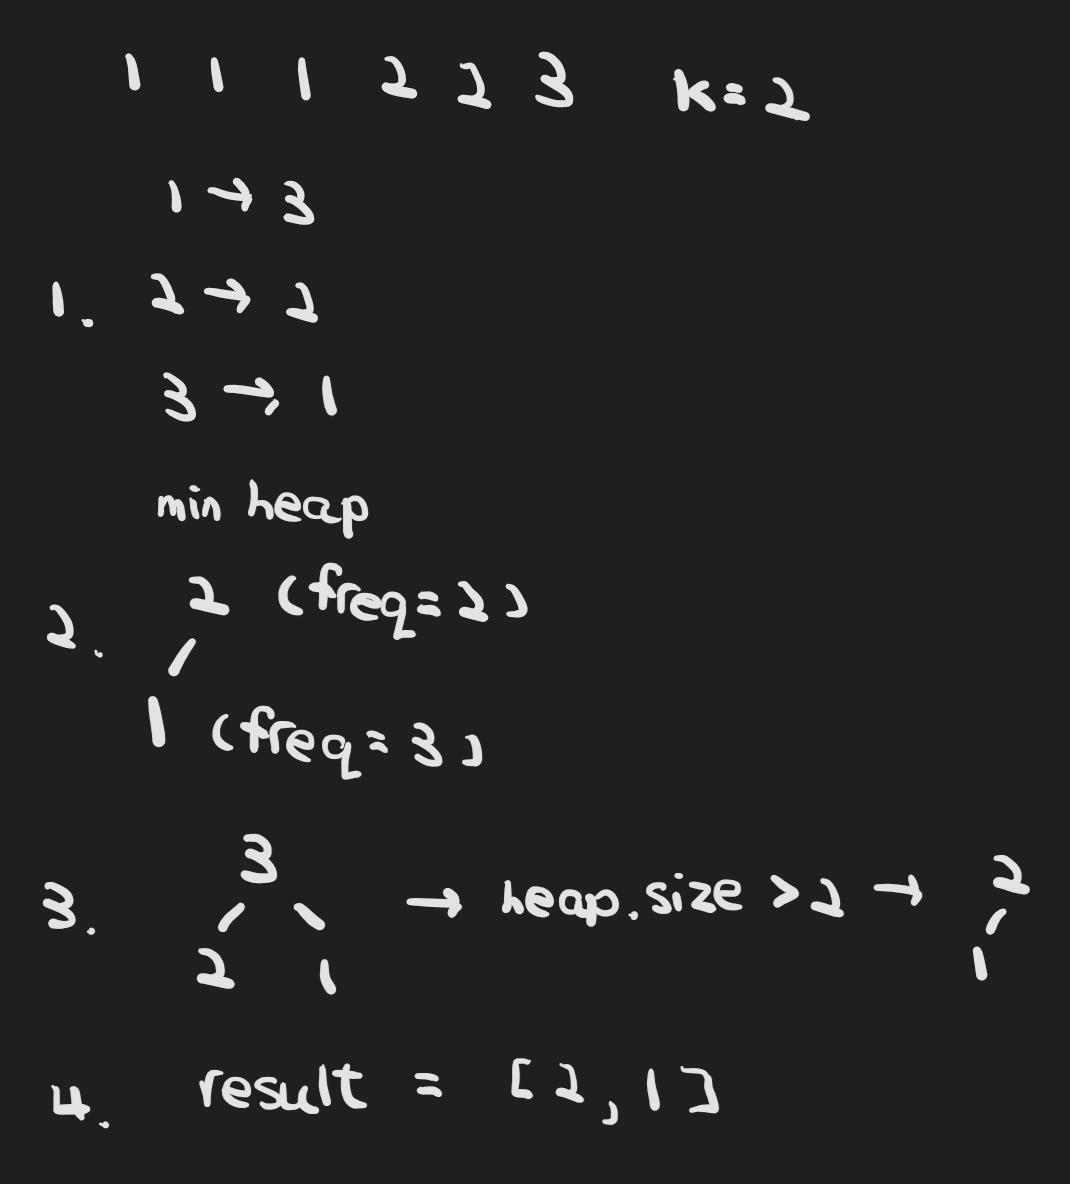 1 1 1 2 2 3 k=2
1 → 3
1. 2 → 2
3 → 1
min heap
2 (freq=2)
2.
1 (freq=3)
3
3. → heap.size >2 → 2
2 1 1
4. result = [2,1]